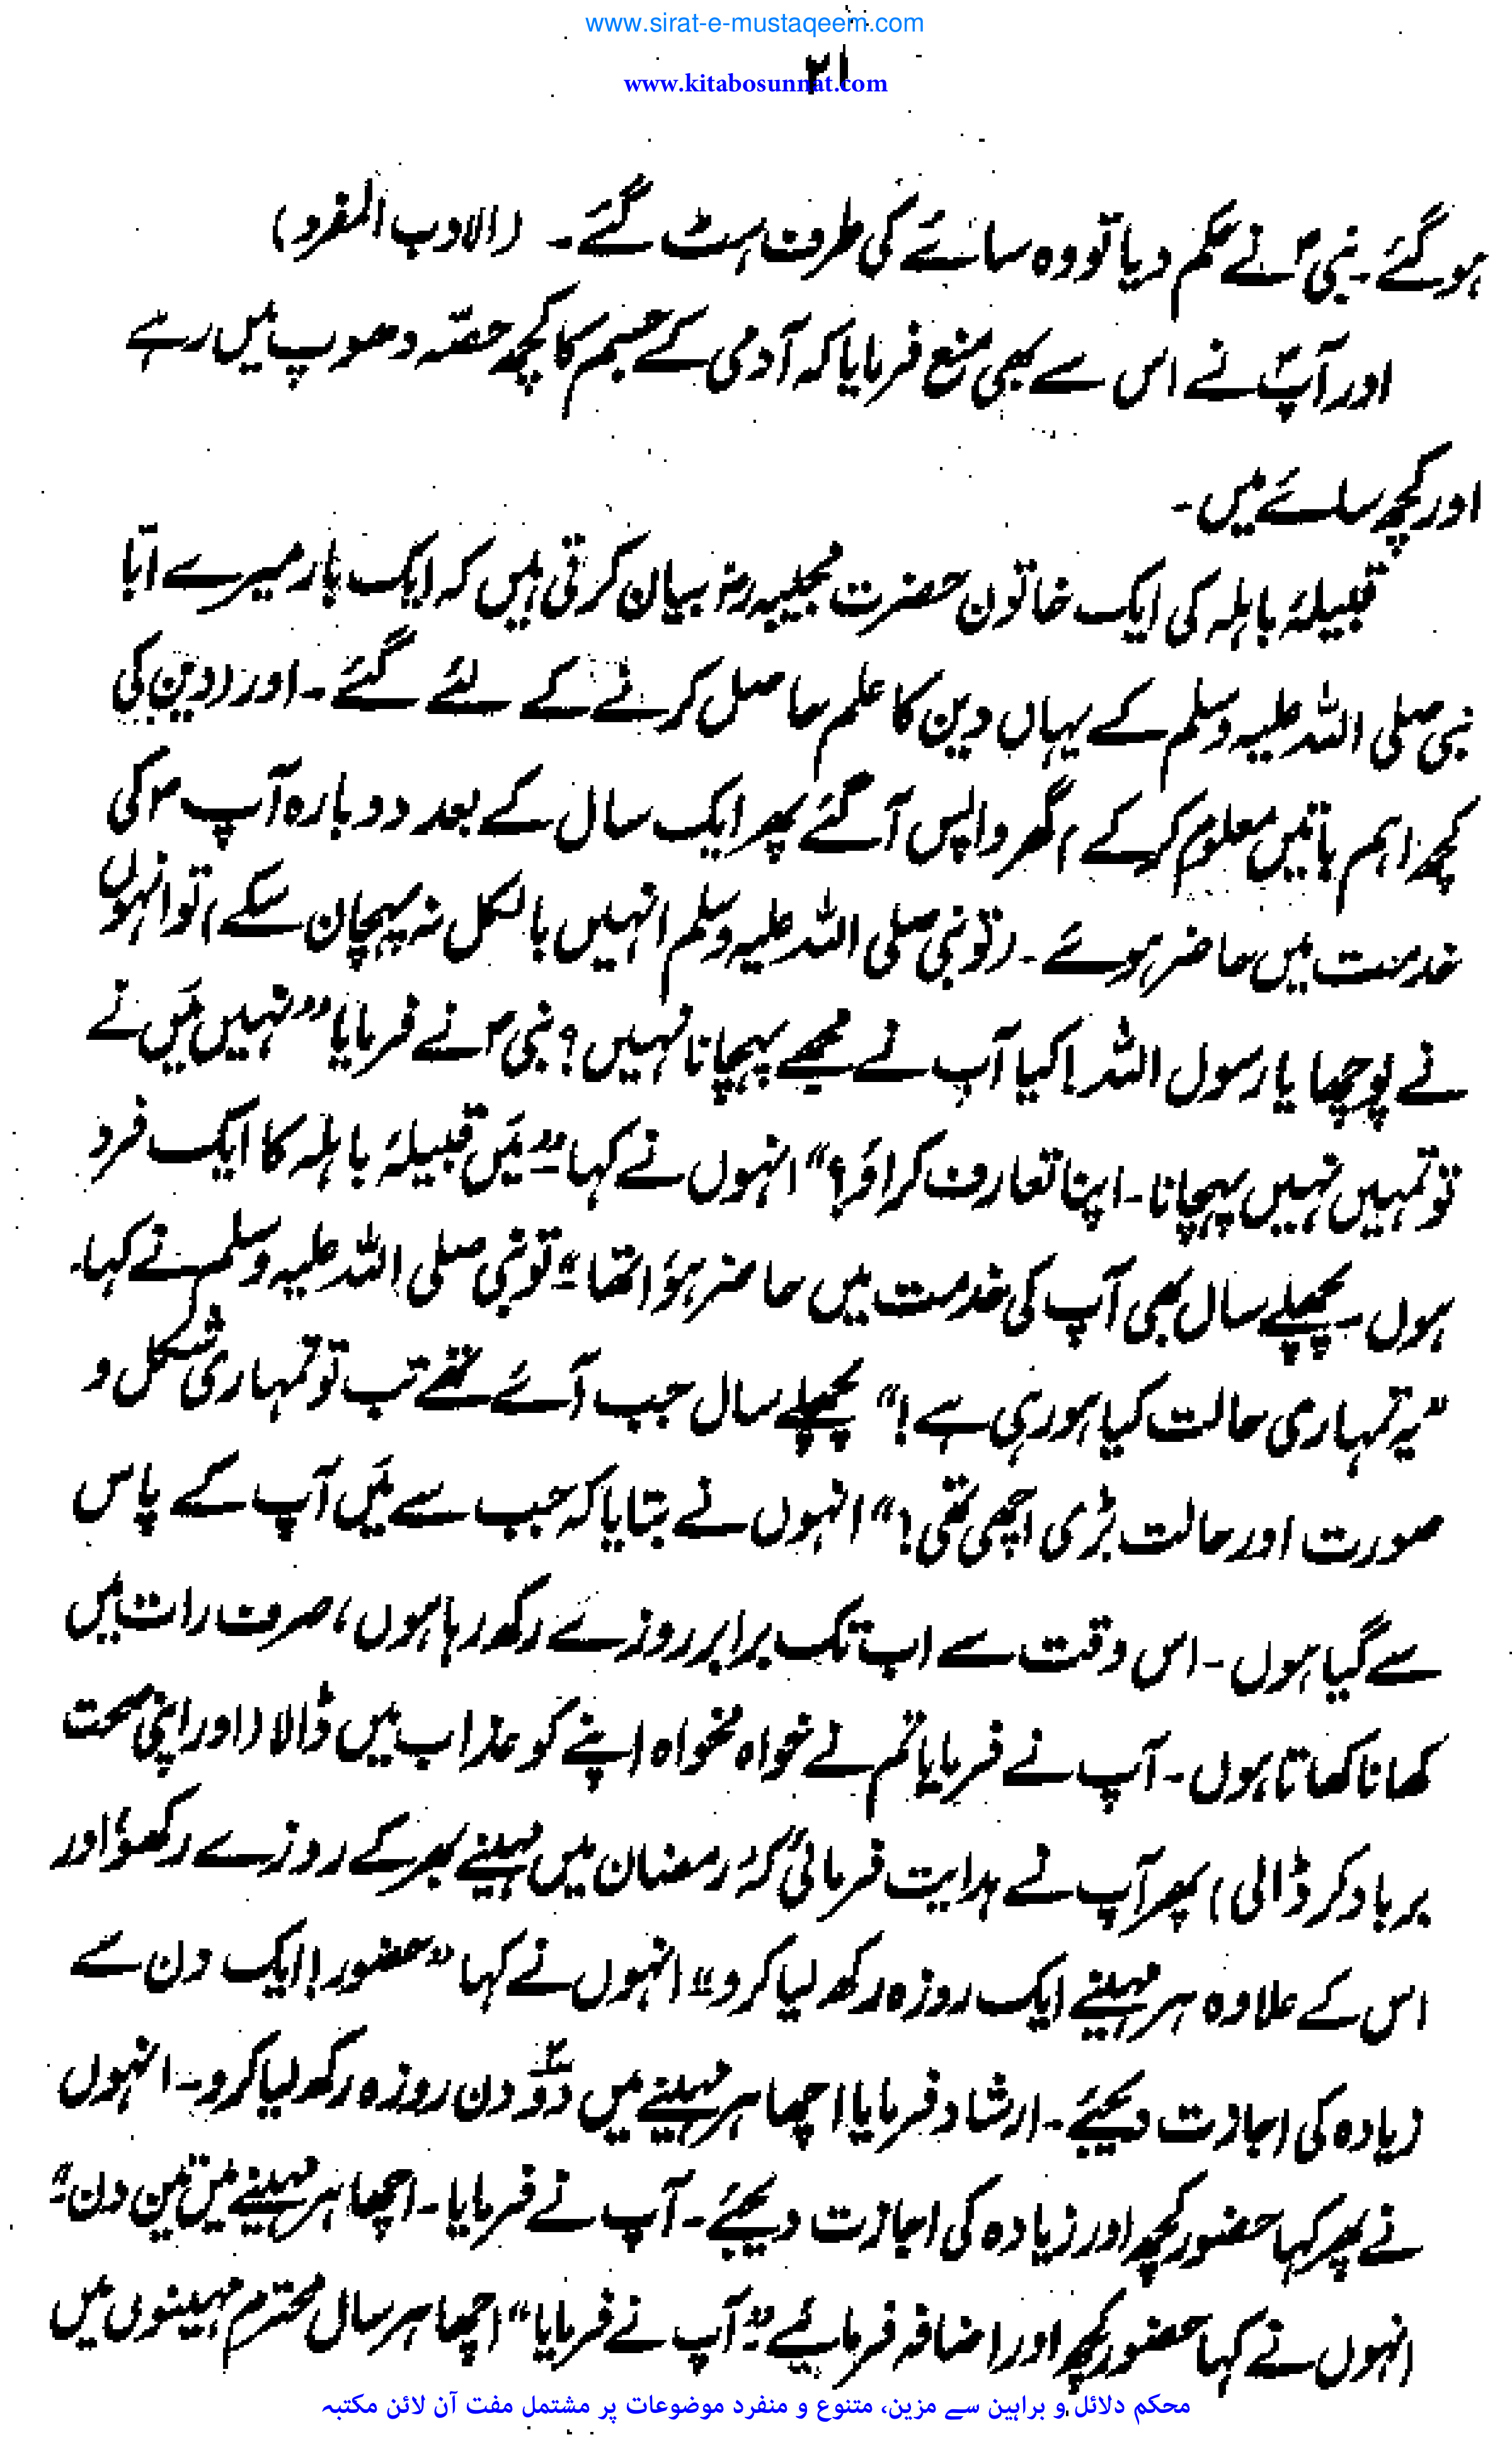 www.sirat-e-mustaqeem.com
۲۱
www.kitabosunnat.com
ہوگئے۔ نبیؐ نے حکم دیا تو وہ سائے کی طرف ہٹ گئے۔ (الادب المفرد)
اور آپؐ نے اس سے بھی منع فرمایا کہ آدمی کے جسم کا کچھ حصّہ دھوپ میں رہے
اور کچھ سائے میں۔
قبیلۂ باہلہ کی ایک خاتون حضرت مجیبہؓ بیان کرتی ہیں کہ ایک بار میرے ابّا
نبی صلی اللہ علیہ وسلم کے یہاں دین کا علم حاصل کرنے کے لئے گئے۔ اور (دین کی
کچھ اہم باتیں معلوم کرکے) گھر واپس آگئے پھر ایک سال کے بعد دوبارہ آپؐ کی
خدمت میں حاضر ہوئے۔ (تو نبی صلی اللہ علیہ وسلم انہیں بالکل نہ پہچان سکے) تو انہوں
نے پوچھا یا رسول اللہ! کیا آپ نے مجھے پہچانا نہیں؟ نبیؐ نے فرمایا ”نہیں مَیں نے
تو تمہیں نہیں پہچانا۔ اپنا تعارف کراؤ؟“ انہوں نے کہا۔ ”مَیں قبیلۂ باہلہ کا ایک فرد
ہوں۔ پچھلے سال بھی آپ کی خدمت میں حاضر ہوُا تھا۔“ تو نبی صلی اللہ علیہ وسلم نے کہا۔
”یہ تمہاری حالت کیا ہو رہی ہے!“ پچھلے سال جب آئے تھے تب تو تمہاری شکل و
صورت اور حالت بڑی اچھی تھی!“ انہوں نے بتایا کہ جب سے مَیں آپ کے پاس
سے گیا ہوں۔ اس وقت سے اب تک برابر روزے رکھ رہا ہوں، صرف رات میں
کھانا کھاتا ہوں۔ آپ نے فرمایا تم نے خواہ مخواہ اپنے کو عذاب میں ڈالا (اور اپنی صحت
برباد کر ڈالی) پھر آپ نے ہدایت فرمائی کہ ’رمضان میں مہینے بھر کے روزے رکھو‘ اور
اس کے علاوہ ہر مہینے ایک روزہ رکھ لیا کرو“ انہوں نے کہا ”حضور! ایک دن سے
زیادہ کی اجازت دیجئے۔ ارشاد فرمایا اچھا ہر مہینے میں دوؔ دن روزہ رکھ لیا کرو۔ انہوں
نے پھر کہا حضور کچھ اور زیادہ کی اجازت دیجئے۔ آپ نے فرمایا۔ اچھا ہر مہینے میں تین دن۔“
انہوں نے کہا حضور کچھ اور اضافہ فرمائیے۔“ آپ نے فرمایا ”اچھا ہر سال محترم مہینوں میں
محکم دلائل و براہین سے مزین، متنوع و منفرد موضوعات پر مشتمل مفت آن لائن مکتبہ